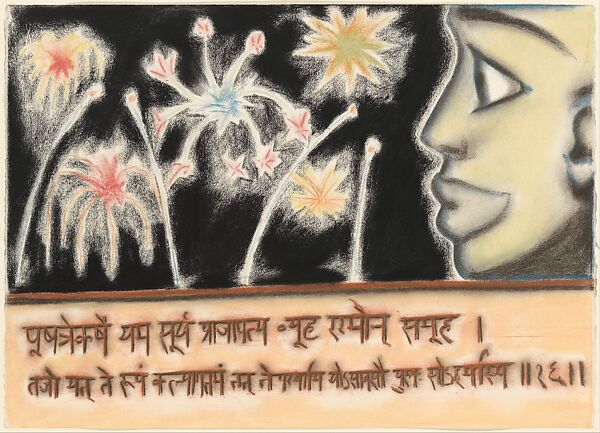 पूषन्नेकर्षे यम सूर्य प्राजापत्य व्यूह रश्मीन् समूह ।
तजो यत् ते रूपं कल्याणतमं तत् ते पश्यामि योऽसावसौ पुरुषः सोऽहमस्मि ॥१६॥